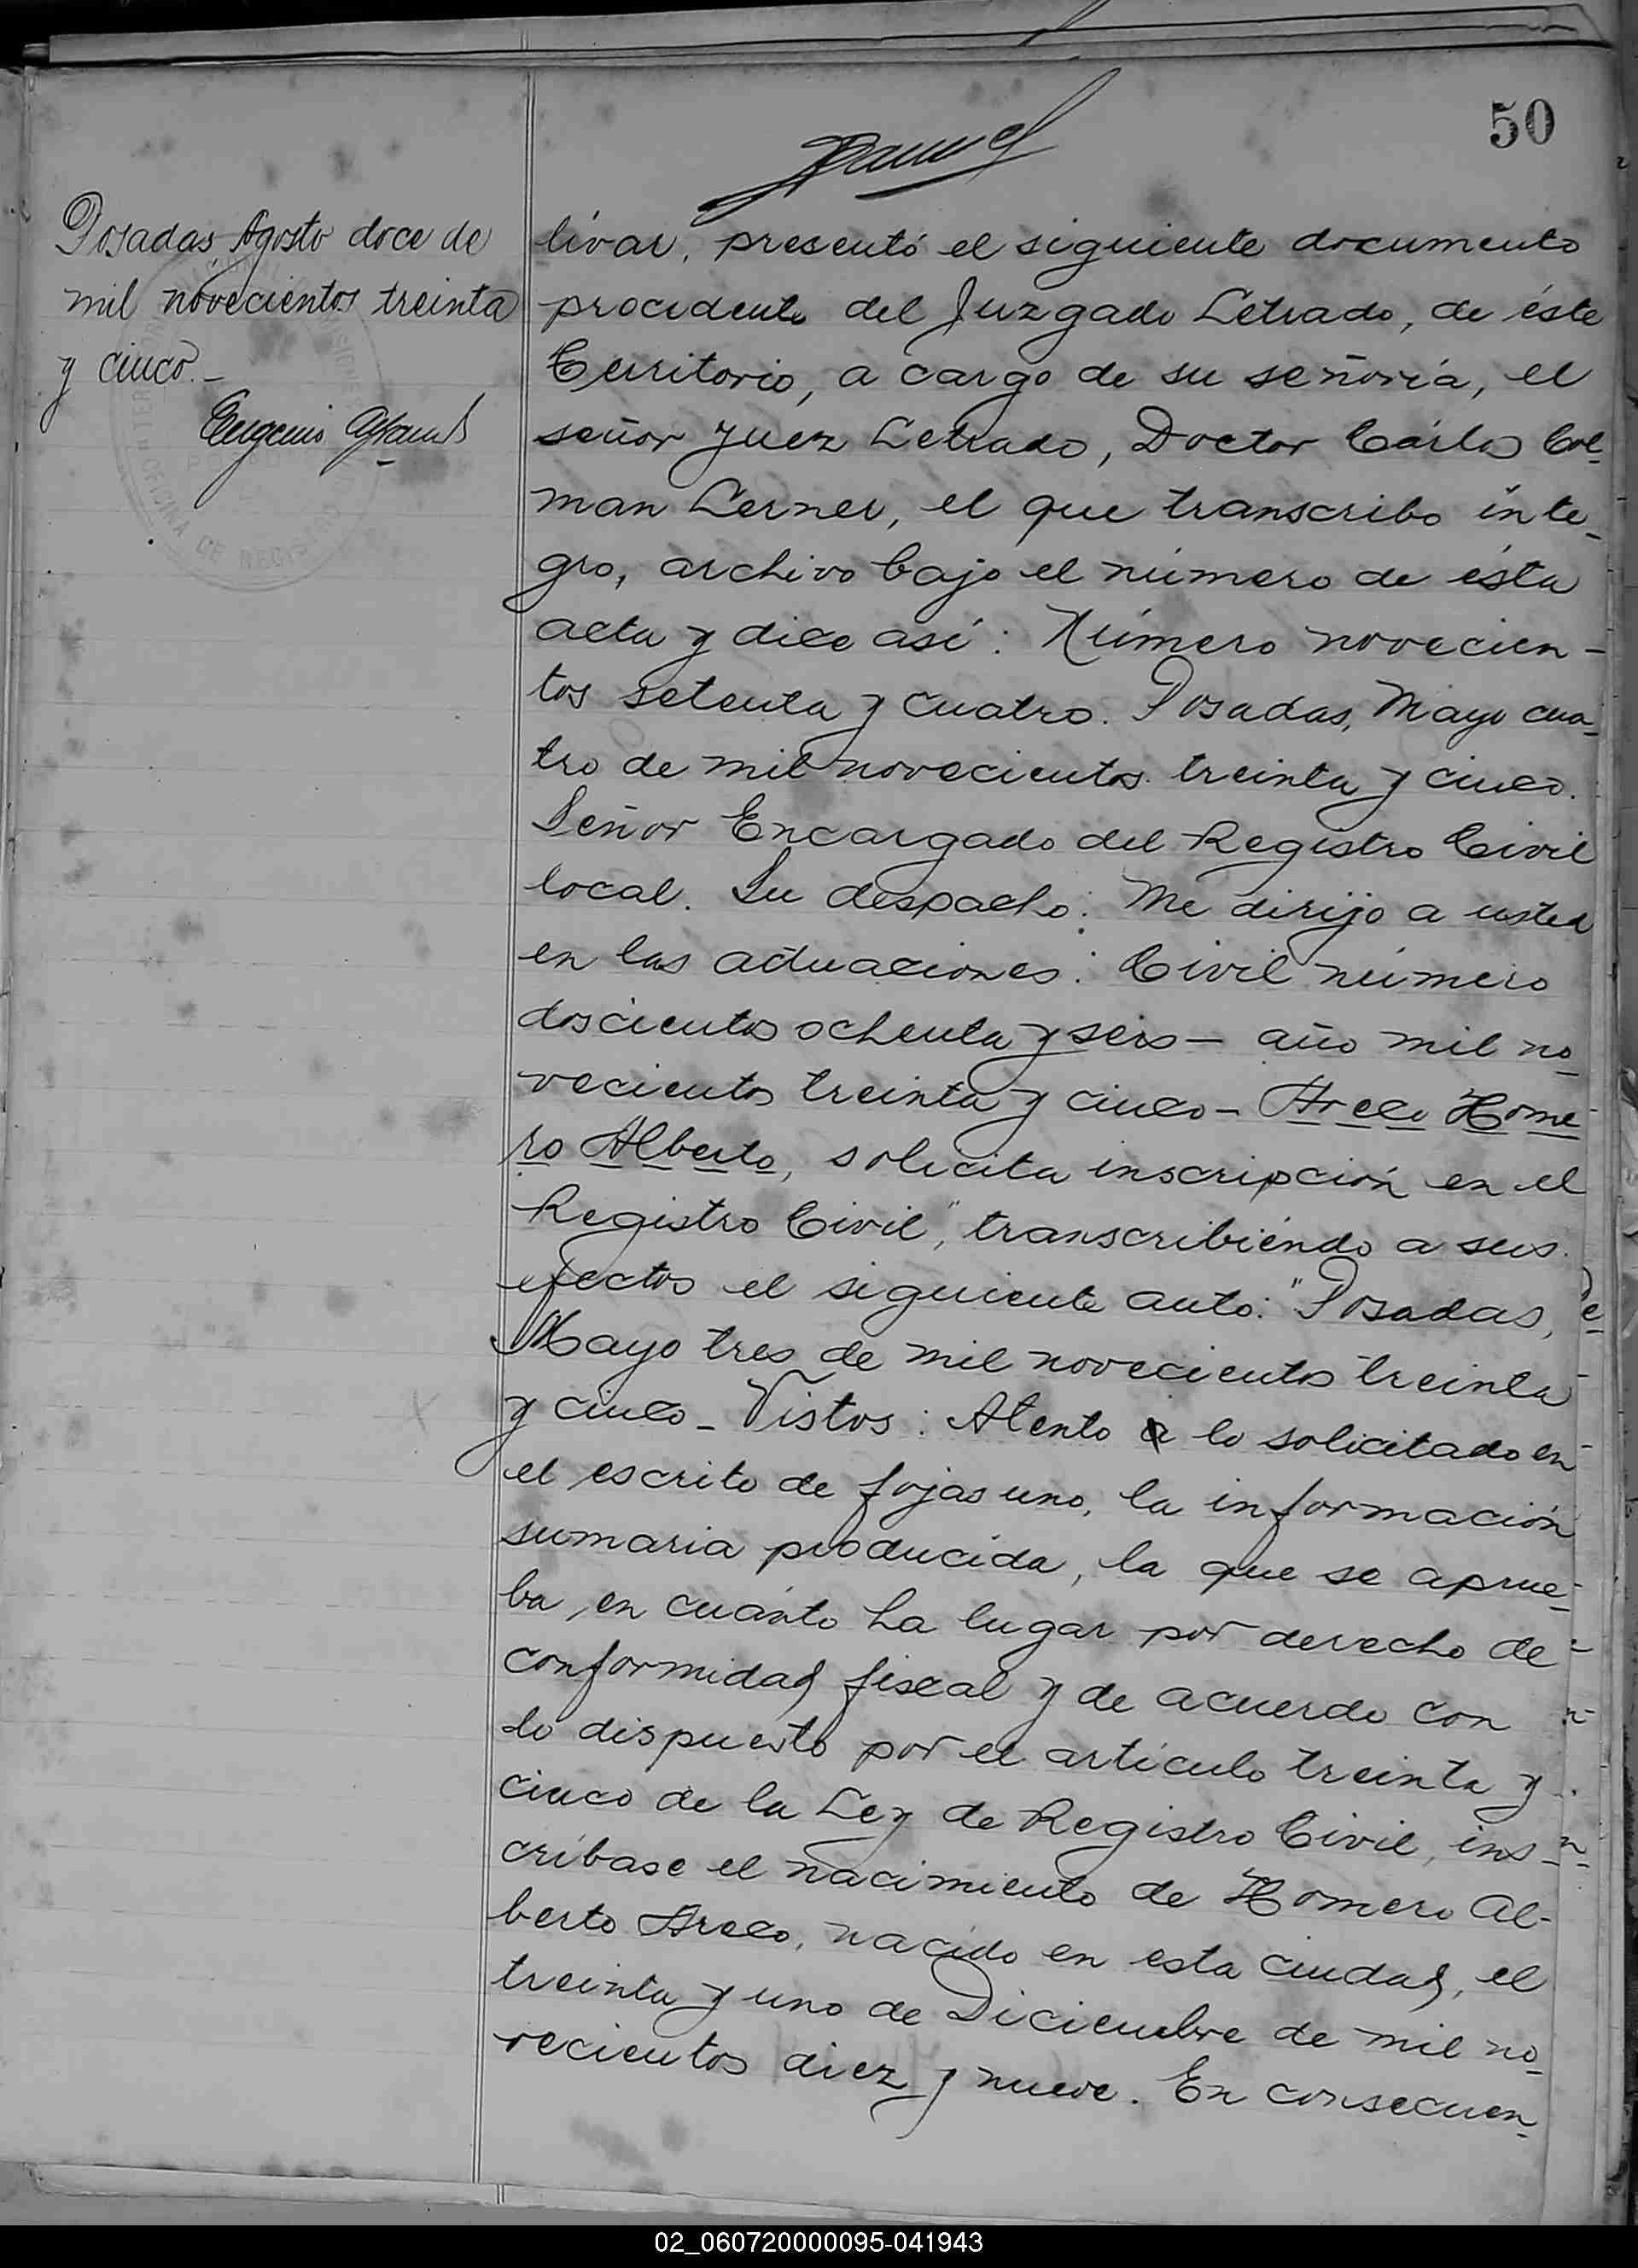 50
Posadas, Agosto doce de
mil novecientos treinta
y cinco.-
Eugenio
OFICINA DE REGISTRO
livar, presentó el siguiente documento
procedente del Juzgado Letrado, de éste
Territorio, a cargo de su señoría, el
señor Juez Letrado, Doctor Cárlos Col-
man Lerner, el que transcribo ínte-
gro, archivo bajo el número de ésta
acta y dice así: Número novecien-
tos setenta y cuatro. Posadas, Mayo cua-
tro de mil novecientos treinta y cinco.
Señor Encargado del Registro Civil
local. Su despacho: Me dirijo a usted
en las actuaciones: Civil número
doscientos ochenta y seis - año mil no-
vecientos treinta y cinco - Areco Home-
ro Alberto, solicita inscripción en el
Registro Civil", transcribiéndo a sus
efectos el siguiente auto: "Posadas,
Mayo tres de mil novecientos treinta
y cinco - Vistos: Atento a lo solicitado en
el escrito de fojas uno, la información
sumaria producida, la que se aprue-
ba en cuánto ha lugar por derecho de
conformidad fiscal y de acuerdo con
lo dispuesto por el artículo treinta y
cinco de la Ley de Registro Civil, ins-
críbase el nacimiento de Homero Al-
berto Areco, nacido en esta ciudad, el
treinta y uno de Diciembre de mil no-
vecientos diez y nueve. En consecuen-
02_060720000095-041943